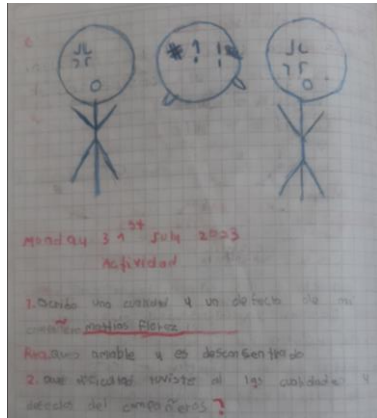 * ? ! *
Monday 31st July 2023
Actividad
1. una cualidad y un defecto de mi
compañero matias Florez
amable y es desconsentrado
2. que dificultad tuviste al las cualidades y
defecto del compañeros?